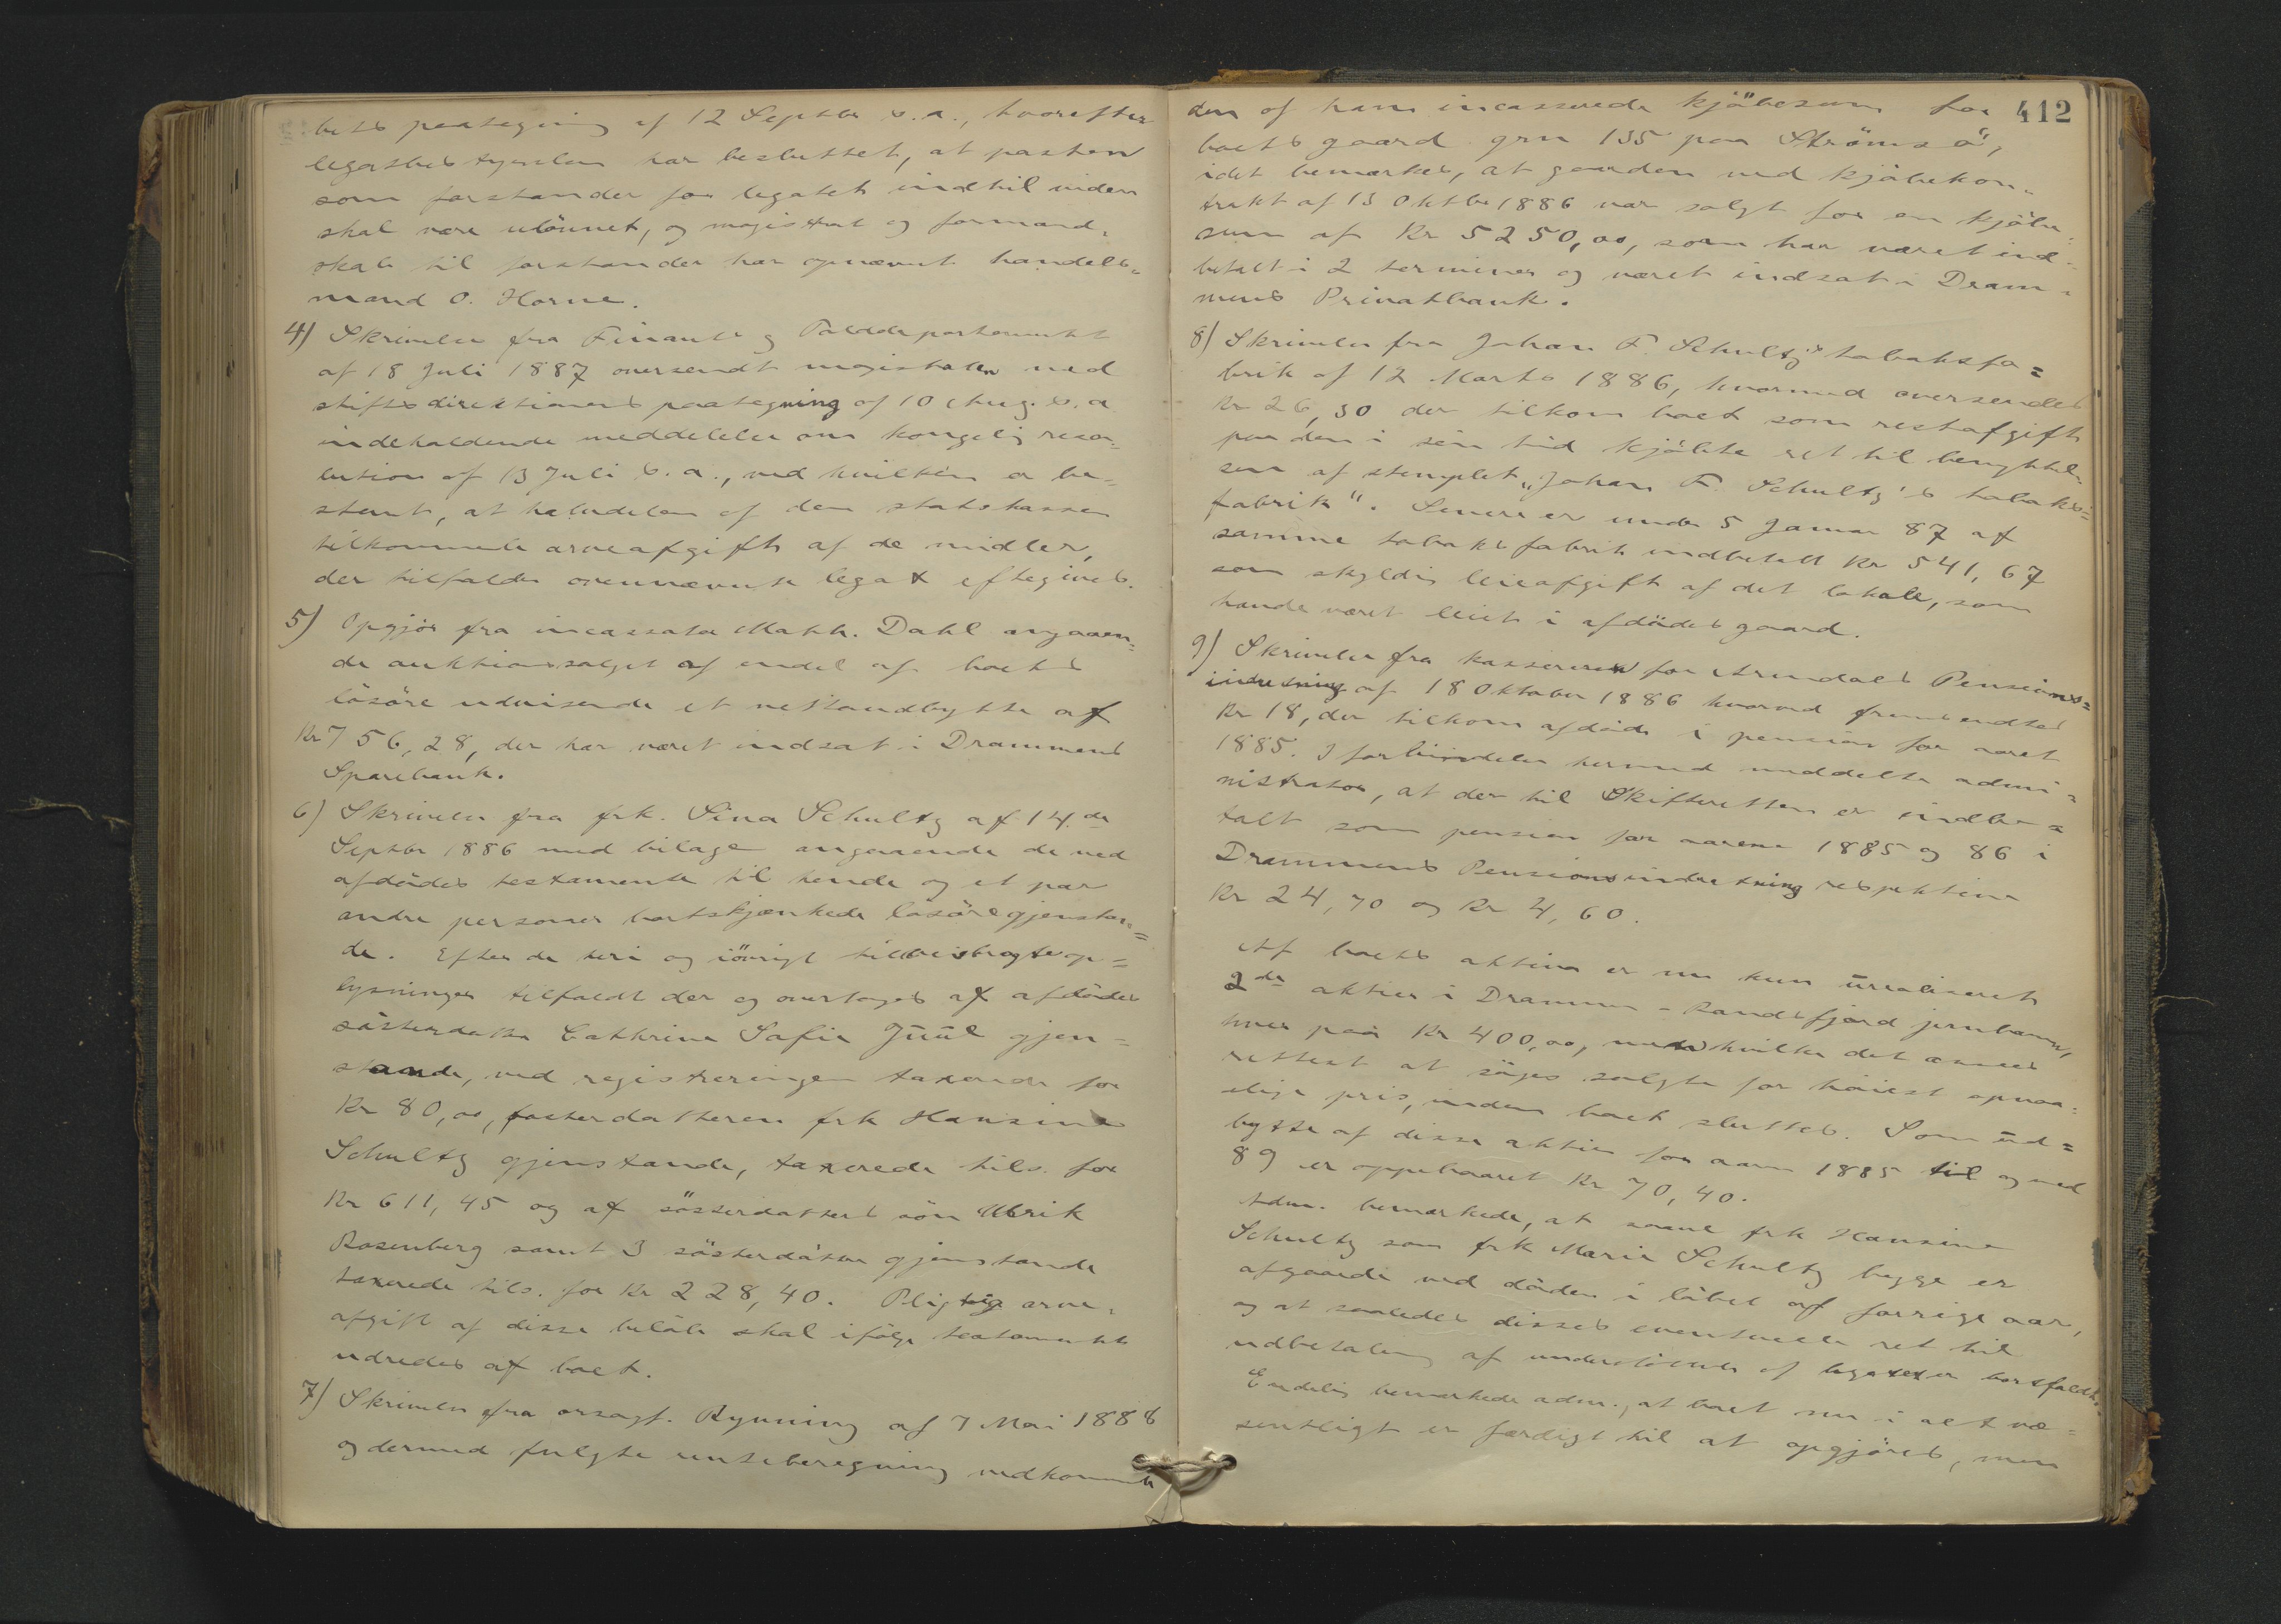 bets paategning af 12 Septbr s. a., hvorefter
legatbestyrelsen har besluttet, at posten
som forstander for legatet indtil videre
skal være ulönnet, og magistrat og formand-
skab til forstander har opnævnt handels-
mand O. Horne.
4) Skrivelse fra Finants og Tolddepartementet
af 18 Juli 1887 oversendt magistraten med
stiftsdirektionens paategning af 10 Aug. s. a.
indeholdende meddelelse om kongelig reso-
lution af 13 Juli s. a., ved hvilken er be-
stemt, at halvdelen af den statskassen
tilkommende arveafgift af de midler,
der tilfalder ovennævnte legat eftergives.
5) Opgjör fra incassator Math. Dahl angaaen-
de auktionssalget af endel af boets
lösöre udvisende et nettoudbytte af
Kr 756,28, der har været indsat i Drammens
Sparebank.
6) Skrivelse fra frk. Sina Schultz af 14.de
Septbr 1886 med bilage angaaende de ved
afdödes testamente til hende og et par
andre personer bortskjænkede lösöregjenstan=
de. Efter de heri og iövrigt tilveiebragte op=
lysninger tilfaldt der og overtoges af afdödes
sösterdatter Cathrine Sofie Juul gjen=
stande, ved registreringen taxerede for
Kr 80,00, fosterdatteren frk Hansine
Schultz gjenstande, taxerede tils. for
Kr 611,45 og af sösterdatters sön Ulrik
Rosenberg samt 3 sösterdötre gjenstande
taxerede tils. for Kr 228,40. Pligtig arve-
afgift af disse belöb skal ifölge testamentet
udredes af boet.
7) Skrivelse fra orsagf. Rynning af 7 Mai 1888
og dermed fulgte renteberegning vedkommende
412
den af ham incasserede kjöbesum for
boets gaard grn 155 paa Strömsö,
idet bemærkes, at gaarden ved kjöbekon-
trakt af 15 Oktbr 1886 var solgt for en kjöbe-
sum af Kr 5250,00, som har været ind-
betalt i 2 terminer og været indsat i Dram-
mens Privatbank.
8) Skrivelse fra Johan F. Schultz's tobaksfa=
brik af 12 Marts 1886, hvormed oversendes
Kr 26,30 der tilkom boet som restafgift
paa den i sin tid kjöbte ret til benyttel-
sen af stemplet „Johan F. Schultz's tobaks=
fabrik". Senere er under 5 Januar 87 af
samme tobaksfabrik indbetalt Kr 541,67
som skyldig leieafgift af det lokale, som
havde været leiet i afdödes gaard.
9) Skrivelse fra kassereren for Arendals Pensions=
indretning af 18 Oktober 1886 hvorved fremsendtes
Kr 18, der tilkom afdöde i pension for aaret
1885. I forbindelse hermed meddelte admi=
nistrator, at der til Skifteretten er indbe=
talt som pension for aarene 1885 og 86 i
Drammens Pensionsindretning respektive
Kr 24,70 og Kr 4,60.
Af boets aktiva er nu kun urealiseret
2de aktier i Drammen - Randsfjord jernbane,
hver paa Kr 400,00, med hvilke det ansees
rettest at söges solgte for höiest opnaa-
elige pris, inden boet sluttes. Som ud=
bytte af disse aktier for aaren 1885 til og med
89 er oppebaaret Kr 70,40.
Adm. bemærkede, at saavel frk Hansine
Schultz som frk Marie Schultz begge er
afgaaede ved döden i löbet af forrige aar,
og at saaledes disses eventuelle ret til
udbetaling af understöttelse af legatet er bortfaldt.
Endelig bemærkede adm., at boet nu i alt væ=
sentligt er færdigt til at opgjöres, men